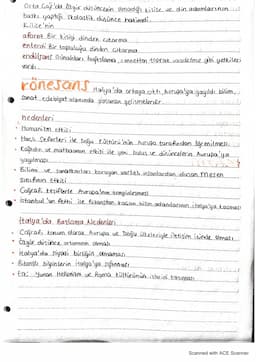 Orta Çağ'da Özgür düşüncenin olmadığı kilise ve din adamlarının
baskı yaptığı skolastik düşünce hakimdi.
Kilise'nin
aforoz Bir kişiyi dinden çıkarma
enterdi Bir topluluğu dinden çıkarma
endülüjans Günahları bağışlama cennetten toprak vaadetme gibi yetkileri
vardı.
rönesans İtalya'da ortaya çıktı, Avrupa'ya yayıldı. bilim,
sanat edebiyat alanında yaşanan gelişmelerdir.
Nedenleri
• Humanizm etkisi
• Haçlı Seferleri ile Doğu Kültürü'nün Avrupa tarafından öğrenilmesi
• Kağıdın ve matbaanın etkisi ile yeni buluş ve düşüncelerin Avrupa'ya
yayılması
• Bilime ve sanatkarları koruyan varlıklı adamlardan oluşan mesen
sınıfının etkisi
• Coğrafi keşiflerle Avrupa'nın zenginleşmesi
• İstanbul'un Fethi ile bilim adamlarının İtalya'ya kaçması
İtalya'da Başlama Nedenleri
• Coğrafi konum olarak Avrupa ve Doğu ülkeleriyle iletişim içinde olması
• Özgür düşünce ortamının olması
• İtalya'da siyasi birliğin olmaması
• Bizanslı bilginlerin İtalya'ya sığınması
• Eski Yunan Hellenizm ve Roma Kültürünün
Scanned with ACE Scanner